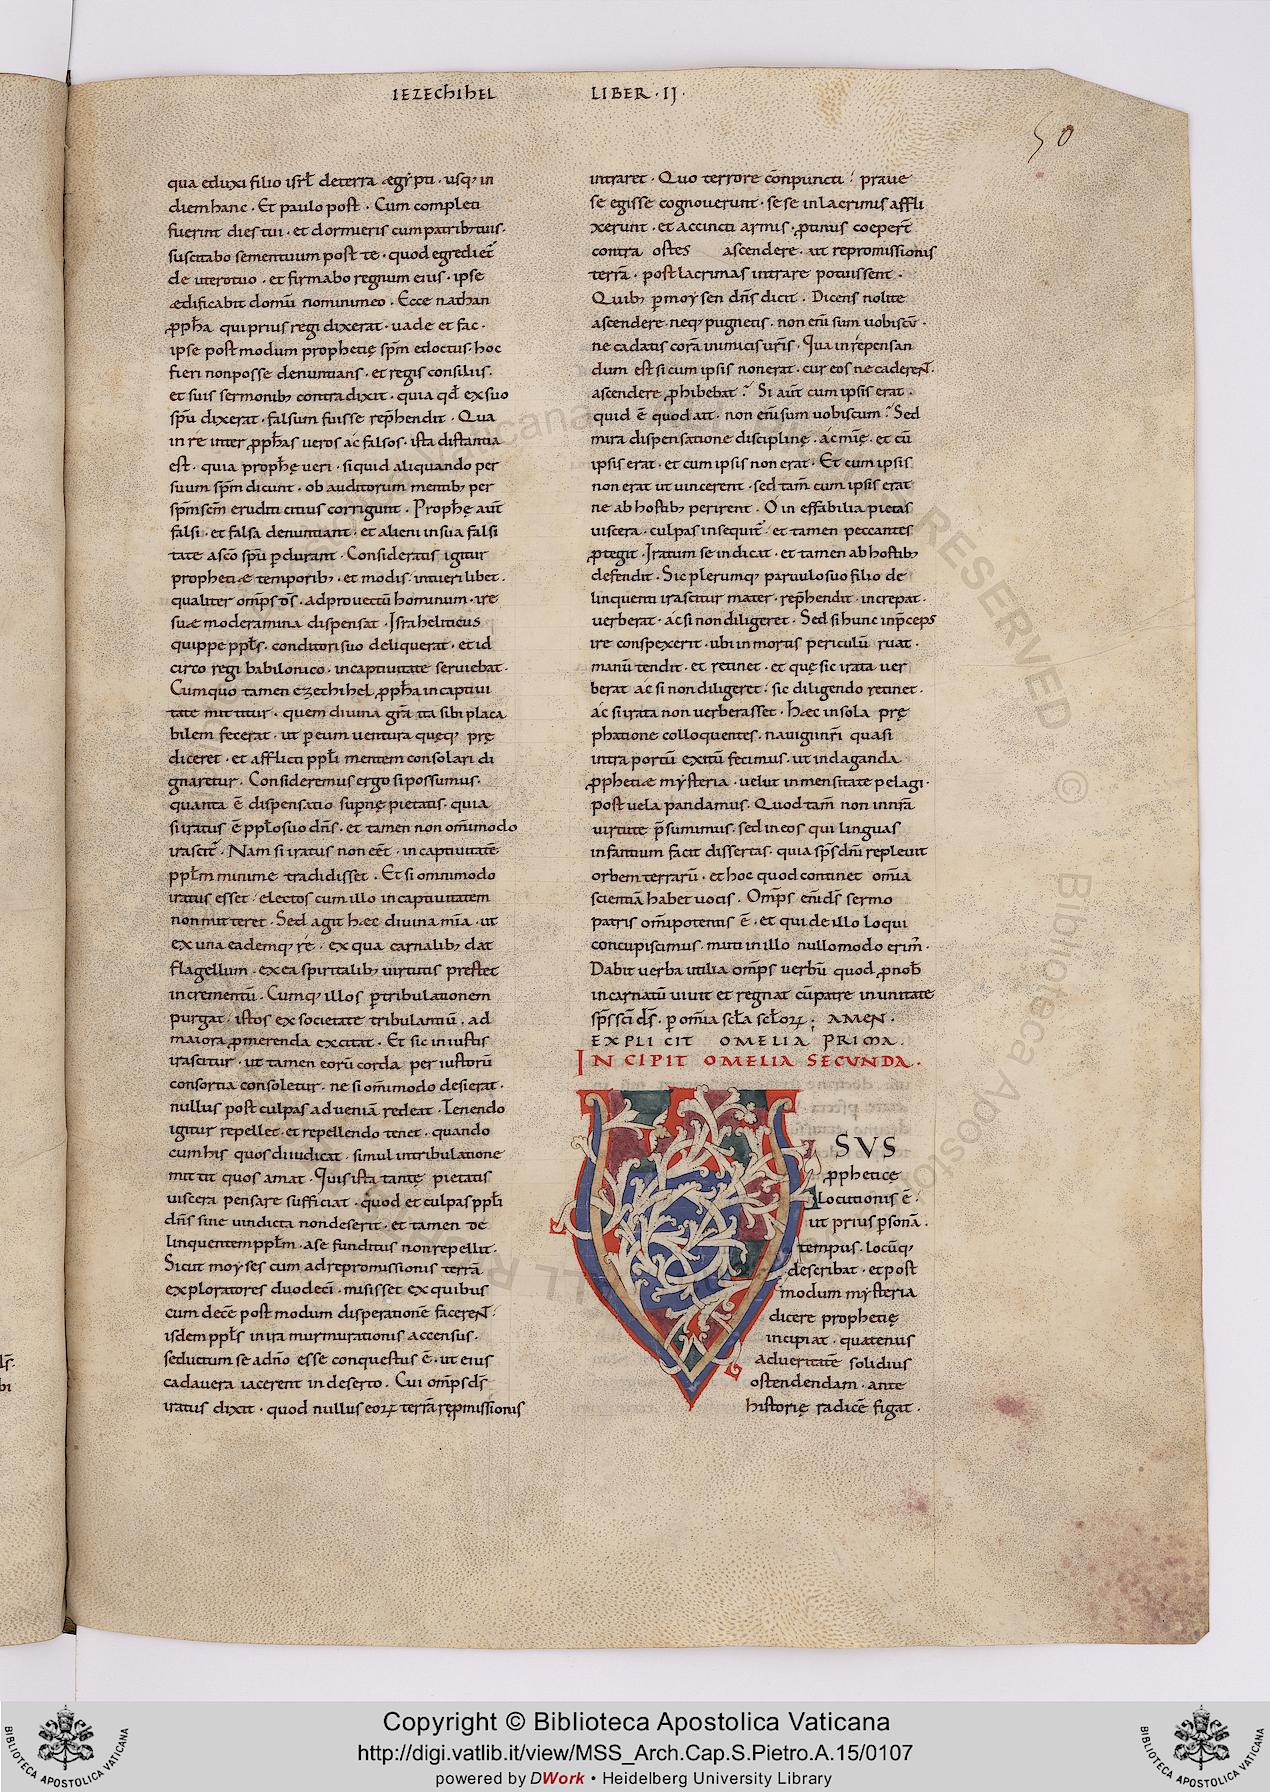 IEZEChIhEL LIBER · II ·
50
qua eduxi filio isrł de terra ęgẏpti · usq; in
diem hanc · Et paulo post · Cum completi
fuerint dies tui · et dormieris cum patrib; tuis ·
suscitabo semen tuum post te · quod egrediet̃
de utero tuo · et firmabo regnum eius · ipse
ædificabit domũ nomini meo · Ecce nathan
ꝓpħa qui prius regi dixerat · uade et fac ·
ipse post modum prophetię sp̃m edoctus · hoc
fieri non posse denuntians · et regis consiliis ·
et suis sermonib; contra dixit · quia qđ ex suo
sp̃u dixerat · falsum fuisse rep̃hendit · Qua
in re inter ꝓpħas ueros ac falsos · ista distantia
est · quia propħę ueri · si quid aliquando per
suum sp̃m dicunt · ob auditorum mentib; per
sp̃m scm̃ eruditi citius corrigunt · Propħę aut̃
falsi · et falsa denuntiant · et alieni in sua falsi
tate a sc̃o sp̃u ꝑdurant · Consideratis igitur
prophetiæ temporib; · et modis · intueri libet ·
qualiter om̃ps d̃s · ad prouectũ hominum · irę
suæ moderamina dispensat · Israheliticus
quippe ppl̃s · conditori suo deliquerat · et id
circo regi babilonico · in captiuitate seruiebat ·
Cum quo tamen ezechihel ꝓpħa in captiui
tate mittitur · quem diuina gr̃a ita sibi placa
bilem fecerat · ut ꝑ eum uentura quęq; prę
diceret · et afflicti ppłi mentem consolari di
gnaretur · Consideremus ergo si possumus ·
quanta ẽ dispensatio sup̃nę pietatis · quia
si iratus ẽ ppło suo dñs · et tamen non om̃imodo
irascit̃ · Nam si iratus non eẽt · in captiuitatẽ
ppłm minime tradidisset · Et si omnimodo
iratus esset · electos cum illo in captiuitatem
non mitteret · Sed agit hæc diuina mĩa · ut
ex una eademq; re · ex qua carnalib; dat
flagellum · ex ea spiritalib; uirtutis prestet
incrementũ · Cumq; illos ꝑ tribulationem
purgat · istos ex societate tribulantiũ · ad
maiora ꝓmerenda excitat · Et sic iniustis
irascitur · ut tamen eorũ corda per iustorũ
consortia consoletur · ne si om̃imodo desierat ·
nullus post culpas ad ueniã redeat · Tenendo
igitur repellet · et repellendo tenet · quando
cum his quos diiudicat · simul in tribulatione
mittit quos amat · Quis ista tantę pietatis
uiscera pensare sufficiat · quod et culpas ppłi
dñs sine uindicta non deserit · et tamen de
linquentem ppłm · a se funditus non repellit ·
Sicut moẏses cum ad repromissionis terrã
exploratores duodeci · misisset ex quibus
cum decẽ post modum disperationẽ facereNt ·
isdem ppl̃s in ira murmurationis accensus ·
seductum se a dño esse conquestus ẽ · ut eius
cadauera iacerent in deserto · Cui om̃ps d̃s
iratus dixit · quod nullus eoꝝ terrã rep̃missionis
intraret · Quo terrore cõnpuncti · praue
se egisse cognouerunt · se se in lacrimis affli
xerunt · et accincti armis · ꝓtinus coepert̃
contra ostes ascendere · ut repromissionis
terrã · post lacrimas intrare potuissent ·
Quib; ꝑ moẏsen dñs dicit · Dicens nolite
ascendere · neq; pugnetis · non enĩ sum uobiscũ ·
ne cadatis corã inimicis ur̃is · Qua in re pensan
dum est si cum ipsis non erat · cur eos ne cadereNt ·
ascendere ꝓhibebat · Si aut̃ cum ipsis erat ·
quid ẽ quod ait · non enĩ sum uobiscum · Sed
mira dispensatione disciplinę · ac mĩę · et cũ
ipsis erat · et cum ipsis non erat · Et cum ipsis
non erat ut uincerent · sed tam̃ cum ipsis erat
ne ab hostib; perirent · O in effabilia pietatis
uiscera · culpas insequit̃ · et tamen peccantes
ꝓtegit · Iratum se indicat · et tamen ab hostib;
defendit · Sic plerumq; paruulo suo filio de
linquenti irascitur mater · rep̃hendit · increpat ·
uerberat · ac si non diligeret · Sed si hunc in p̃ceps
ire conspexerit · ubi in mortis periculũ ruat ·
manũ tendit · et retinet · et quę sic irata uer
berat ac si non diligeret · sic diligendo retinet ·
ac si irata non uerberasset · Hæc in sola prę
phatione colloquentes · nauigiĩ nr̃i quasi
intra portũ exitũ fecimus · ut indaganda
ꝓphetiæ mẏsteria · uelut in mensitate pelagi ·
post uela pandamus · Quod tam̃ non in nr̃a
uirtute p̃sumimus · sed in eos qui linguas
infantium facit dissertas · quia sp̃s dñi repleuit
orbem terrarũ · et hoc quod continet om̃ia
scientiã habet uocis · Om̃ps enĩ d̃s sermo
patris om̃ipotentis ẽ · et qui de illo loqui
concupiscimus · muti in illo nullo modo erim̃ ·
Dabit uerba utilia om̃ps uerbũ quod ꝓ nob̃
incarnatũ uiuit et regnat cũ patre in unitate
sp̃s sc̃i d̃s · ꝑ om̃ia scła scłoꝝ ; AMEN ·
EXPLICIT OMELIA PRIMA ·
INCIPIT OMELIA SECUNDA ·
VSVS
ꝓpheticę
locutionis ẽ ·
ut prius ꝑsonã ·
tempus · locũq;
describat · et post
modum mẏsteria
dicere prophetię
incipiat · quatenus
ad ueritatẽ solidius
ostendendam · ante
historię radicẽ figat ·
Copyright © Biblioteca Apostolica Vaticana
http://digi.vatlib.it/view/MSS_Arch.Cap.S.Pietro.A.15/0107
powered by DWork • Heidelberg University Library
BIBLIOTECA APOSTOLICA VATICANA
BIBLIOTECA APOSTOLICA VATICANA